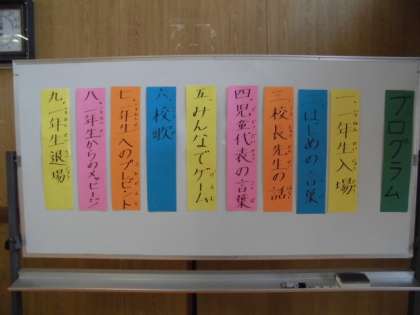 プログラム
一、一年生入場
二、はじめの言葉
三、校長先生の話
四、児童代表の言葉
五、みんなでゲーム
六、校歌
七、一年生へのプレゼント
八、一年生からのメッセージ
九、一年生退場